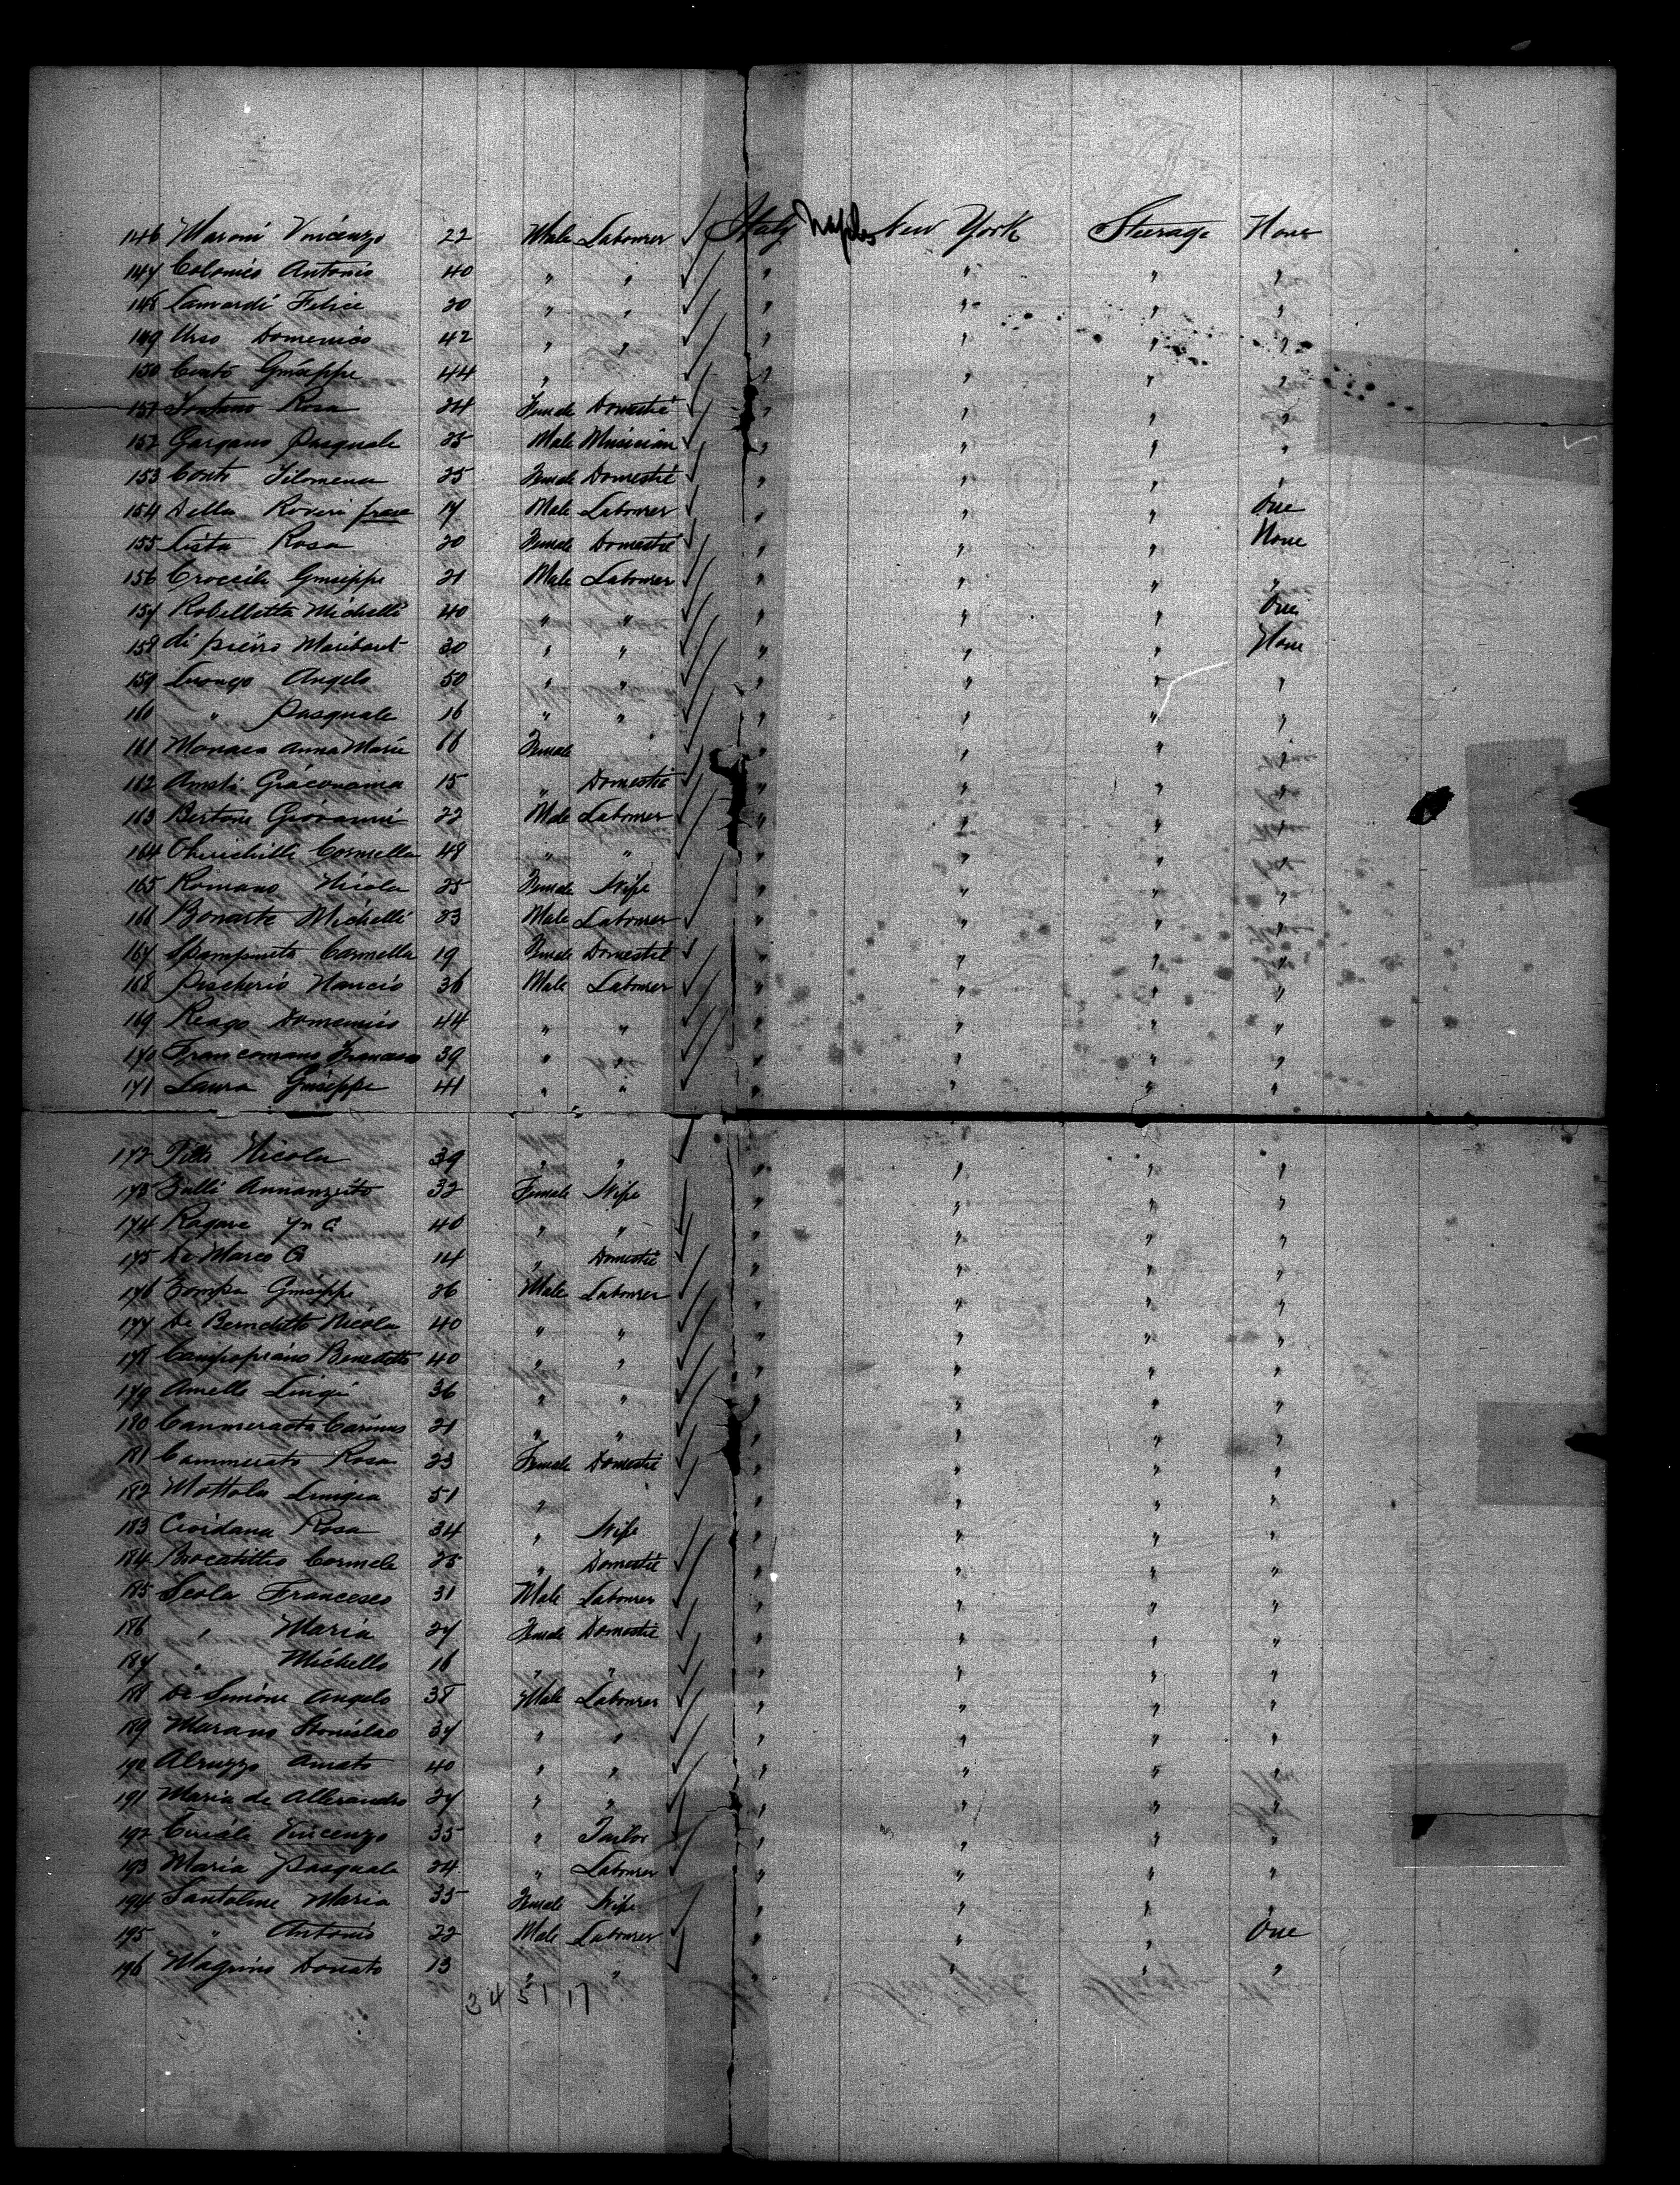 146 Maroni Vincenzo 22 Male Labourer ✓ Italy Naples New York Steerage None
147 Colonico Antonio 40 " " ✓ " " " "
148 Lanvardi Felice 20 " " ✓ " " " "
149 Urso Domenico 42 " " ✓ " " " "
150 Conto Giuseppe 44 " ✓ " " " "
151 Fontano Rosa 24 Female Domestic ✓ " " " "
152 Gargano Pasquale 25 Male Musician ✓ " " " "
153 Conto Filomena 25 Female Domestic ✓ " " " "
154 Della Roveri 17 Male Labourer ✓ " " " One
155 Lista Rosa 20 Female Domestic ✓ " " " None
156 Croccile Giuseppe 21 Male Labourer ✓ " " " "
157 Robellotta Michelli 40 " " ✓ " " " One
158 di pierro 30 " " ✓ " " " None
159 Luongo Angelo 50 " " ✓ " " " "
160 " Pasquale 16 " " ✓ " " " "
161 Monaco Anna Marie Female ✓ " " " "
162 15 " Domestic ✓ " " " "
163 Bertoni Giovanni 22 Male Labourer ✓ " " " "
164 Cormella 48 " " ✓ " " " "
165 Romano Nicola 25 Female Wife ✓ " " " "
166 Bonarte Michelli 23 Male Labourer ✓ " " " "
167 Spampinato Carmella 19 Female Domestic ✓ " " " "
168 Pischerio Nancio 36 Male Labourer ✓ " " " "
169 Reago Domenico 44 " " ✓ " " " "
170 Francomano Francesco 39 " " ✓ " " " "
171 Laura Giuseppe 41 " " ✓ " " " "
172 Tillo Nicola 39 " " ✓ " " " "
173 Zulli Annanzeito 32 Female Wife ✓ " " " "
174 Ragave 40 " " ✓ " " " "
175 De Marco G 14 " Domestic ✓ " " " "
176 Zompa Giuseppe 26 Male Labourer ✓ " " " "
177 De Benedetto Nicola 40 " " ✓ " " " "
178 Campopiano Benedetto 40 " " ✓ " " " "
179 Amello Luigi 36 " " ✓ " " " "
180 Canmeraota Carinus 21 " " ✓ " " " "
181 Cammerato Rosa 23 Female Domestic ✓ " " " "
182 Mottola Luigia 51 " ✓ " " " "
183 Cioidana Rosa 34 " Wife " " " "
184 Brocatillio Cormela 25 " Domestic ✓ " " " "
185 Scola Francesco 31 Male Labourer ✓ " " " "
186 " Maria 27 Female Domestic ✓ " " " "
187 " Michello 16 " " ✓ " " " "
188 De Simone Angelo 38 Male Labourer ✓ " " " "
189 Marano Stanislao 37 " " ✓ " " " "
190 Alruzzo Amato 40 " " ✓ " " " "
191 Maria de Allerandro 27 " " ✓ " " " "
192 Vincenzo 35 " Tailor ✓ " " " "
193 Maria Pasquale 24 " Labourer ✓ " " " "
194 Santolme Maria 35 Female Wife ✓ " " " "
195 " Antonio 22 Male Labourer ✓ " " " One
196 Magrino Donato 13 " " " " " "
34 51 17